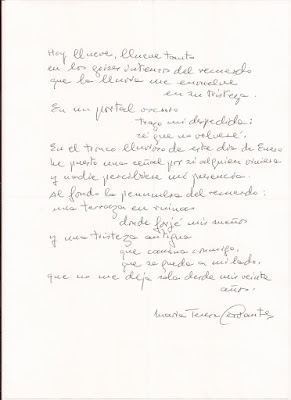 Hoy llueve, llueve tanto
en los grises intensos del recuerdo
que la lluvia me envuelve
en su tristeza.
En un portal oscuro
trazo mi despedida:
sé que no volveré.
En el tronco lluvioso de este día de Enero
he puesto una señal por si alguien viniera
y nadie percibiera mi presencia.
Al fondo la penumbra del recuerdo:
una terraza en ruinas
donde forjé mis sueños
y una tristeza antigua
que camina conmigo,
que se queda a mi lado,
que no me deja sola desde mis veinte
años.
María Teresa Cervantes